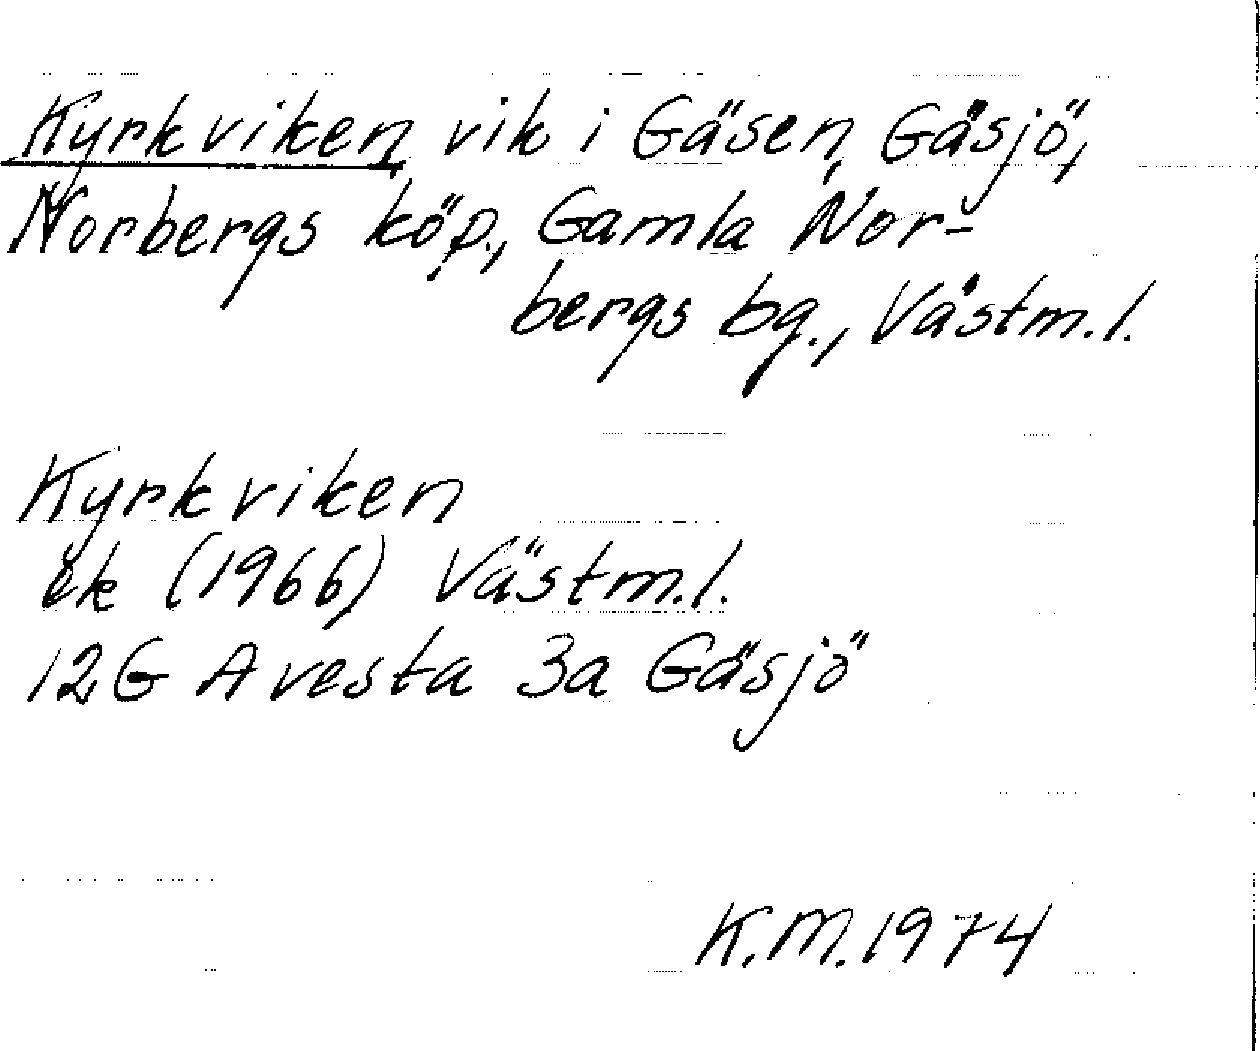 Kyrkviken, vik i Gäsen, Gäsjö,
Norbergs köp., Gamla Nor-
bergs bg., Västm.l.
Kyrkviken
ek (1966) Västm.l.
12G Avesta 3a Gäsjö
K.M.1974